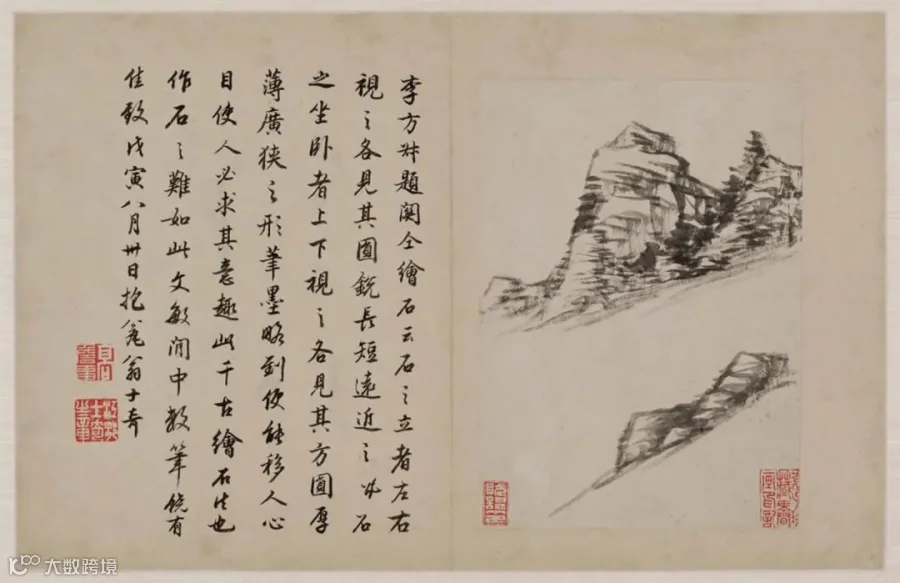 李方叔題関仝繪石云石之立者左右
視之各見其圓銳長短遠近之狀石
之坐卧者上下視之各見其方圓厚
薄廣狹之形筆墨略到便能移人心
目使人必求其意趣此千古繪石法也
作石之難如此文敏閒中数筆饒有
佳致戊寅八月卅日抱瓮翁士奇
大数跨境